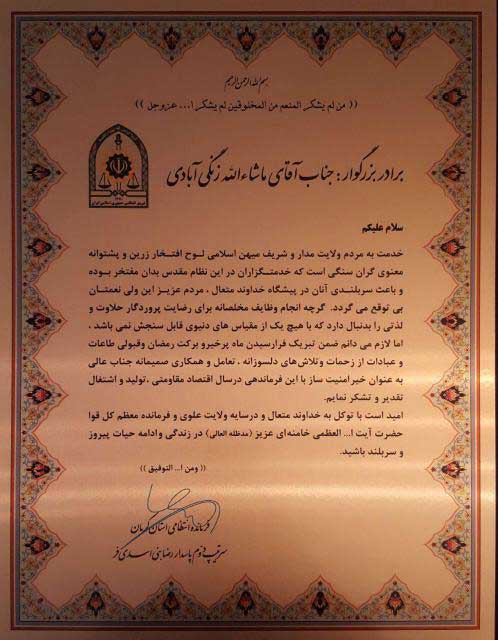 بسم الله الرحمن الرحیم
(( من لم یشکر المنعم من المخلوقین لم یشکر ا... عزوجل ))
برادر بزرگوار : جناب آقای ماشاءالله زنگی آبادی
سلام علیکم
خدمت به مردم ولایت مدار و شریف میهن اسلامی لوح افتخار زرین و پشتوانه
معنوی گران سنگی است که خدمتگزاران در این نظام مقدس بدان مفتخر بوده
و باعث سربلندی آنان در پیشگاه خداوند متعال ، مردم عزیز این ولی نعمتان
بی توقع می گردد. گرچه انجام وظایف مخلصانه برای رضایت پروردگار حلاوت و
لذتی را بدنبال دارد که با هیچ یک از مقیاس های دنیوی قابل سنجش نمی باشد ،
اما لازم می دانم ضمن تبریک فرارسیدن ماه پرخیرو برکت رمضان وقبولی طاعات
و عبادات از زحمات وتلاش‌های دلسوزانه ، تعامل و همکاری صمیمانه جناب عالی
به عنوان خیر امنیت ساز با این فرماندهی درسال اقتصاد مقاومتی ،تولید و اشتغال
تقدیر و تشکر نمایم.
امید است با توکل به خداوند متعال و درسایه ولایت علوی و فرمانده معظم کل قوا
حضرت آیت ا... العظمی خامنه‌ای عزیز (مدظله العالی) در زندگی وادامه حیات پیروز
و سربلند باشید.
(( ومن ا... التوفیق ))
فرمانده انتظامی استان کرمان
سرتیپ دوم پاسدار رضا بنی اسدی فر